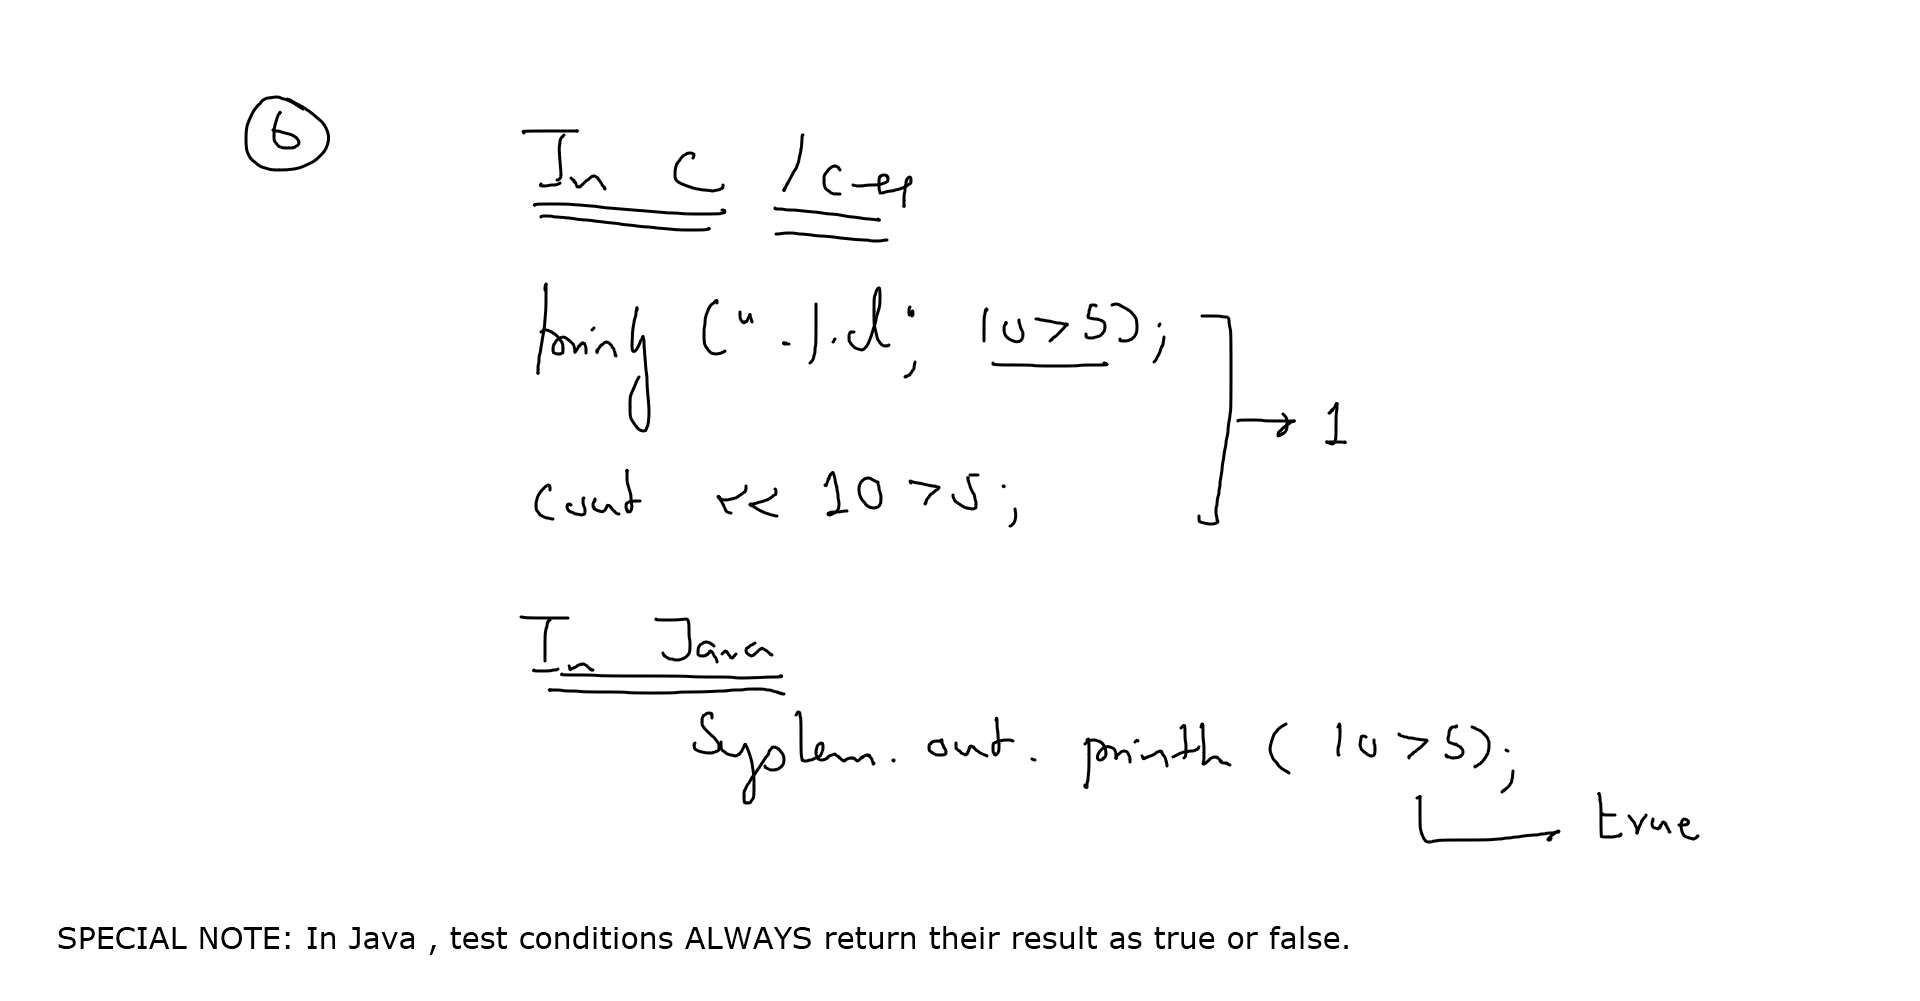 6
In C / C++
printf ("%d", 10>5);
cout << 10 >5;
→ 1
In Java
System. out. println ( 10 >5);
true
SPECIAL NOTE: In Java , test conditions ALWAYS return their result as true or false.